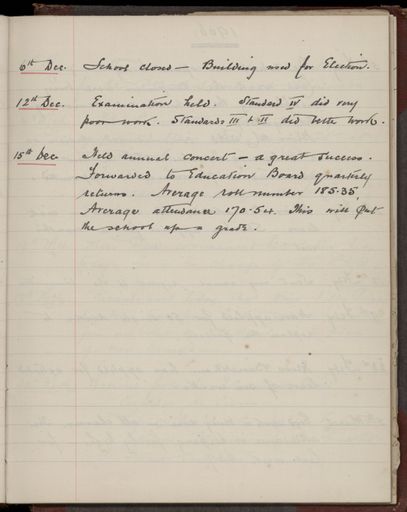 6th Dec. School closed — Building used for Election.
12th Dec. Examination held. Standard IV did very
poor work. Standards III & II did bette work.
15th Dec. Held annual concert — a great success.
Forwarded to Education Board quarterly
returns. Average roll number 185.35,
Average attendance 170.54. This will put
the school up a grade.